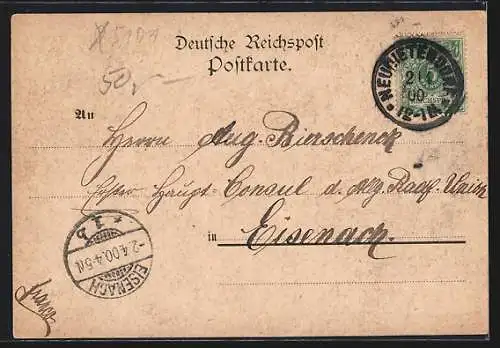 50,-
Deutsche Reichspost
Postkarte.
NEUDIETENDORF
2 4
00
12-1N.
An
Herrn Aug. Bierschenck
Erster Haupt-Consul d. Allg. Radf. Union
in Eisenach.
* 1 b
-2.4.00.4-5N.
EISENACH